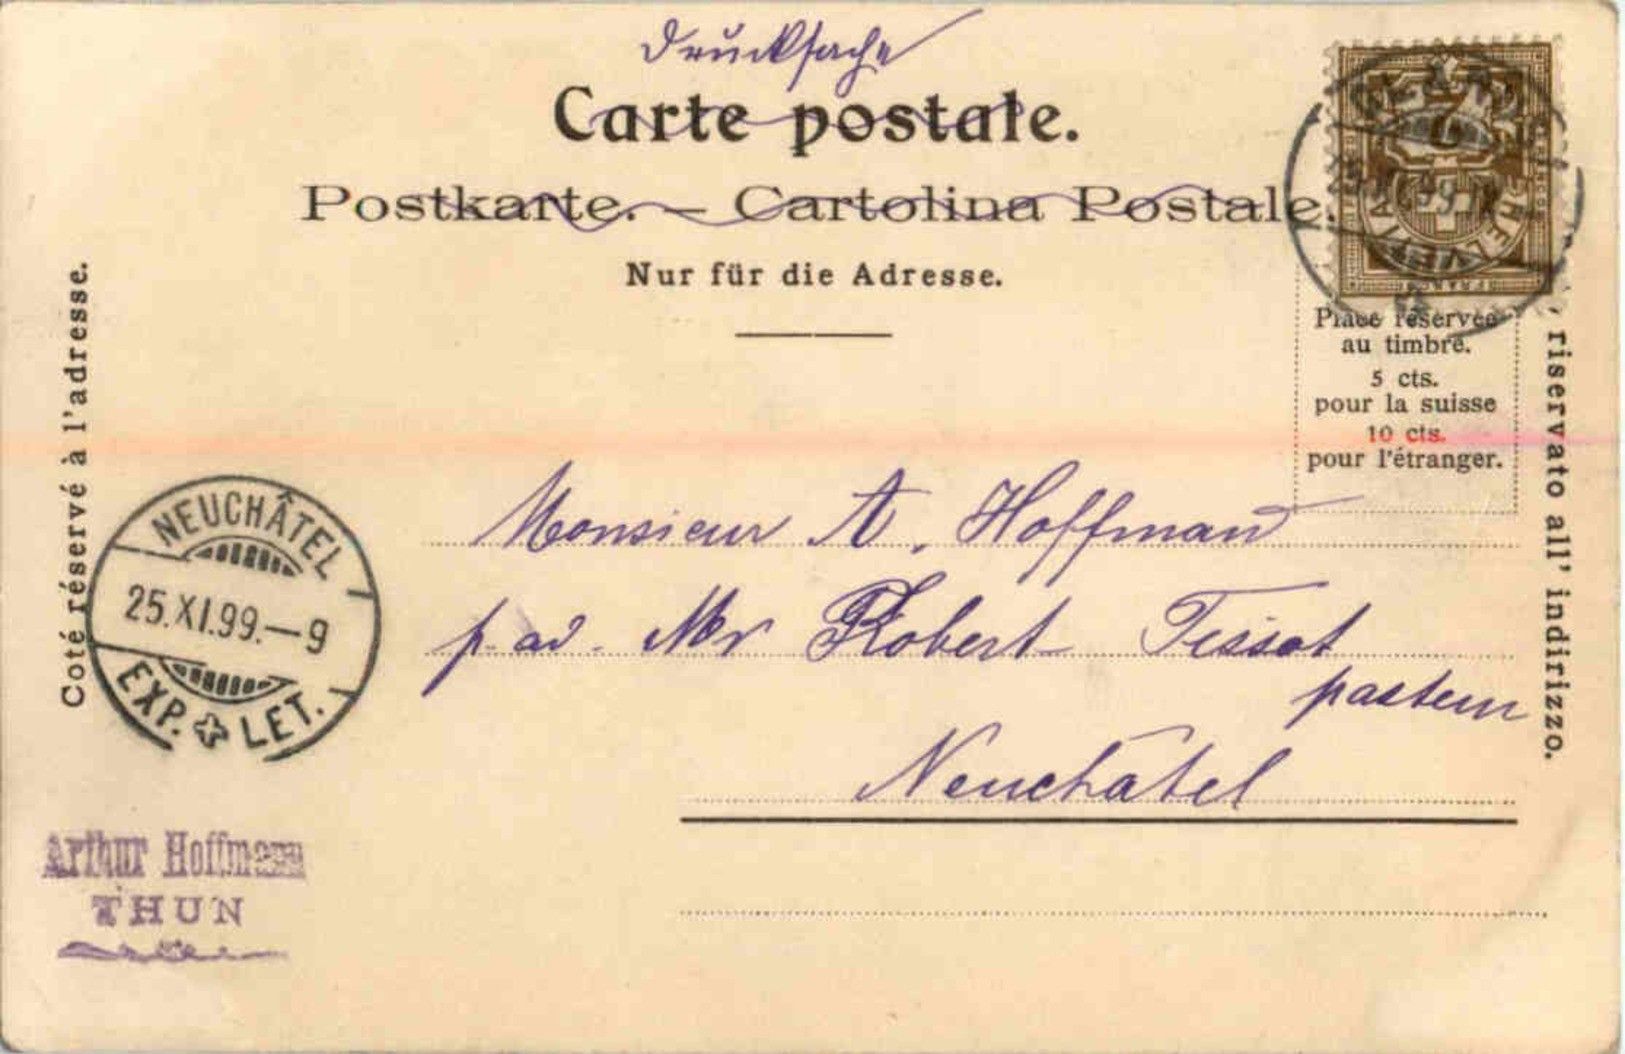 Drucksache
Carte postale.
Postkarte. — Cartolina Postale.
Nur für die Adresse.
Coté réservé à l'adresse.
2
HELVETIA
FRANCO
Place réservée
au timbre.
5 cts.
pour la suisse
10 cts.
pour l'étranger.
riservato all' indirizzo.
NEUCHÂTEL
25.XI.99.—9
EXP. LET.
Monsieur A. Hoffmann
p. ad. Mr Robert Tissot
pasteur
Neuchâtel
Arthur Hoffmann
THUN